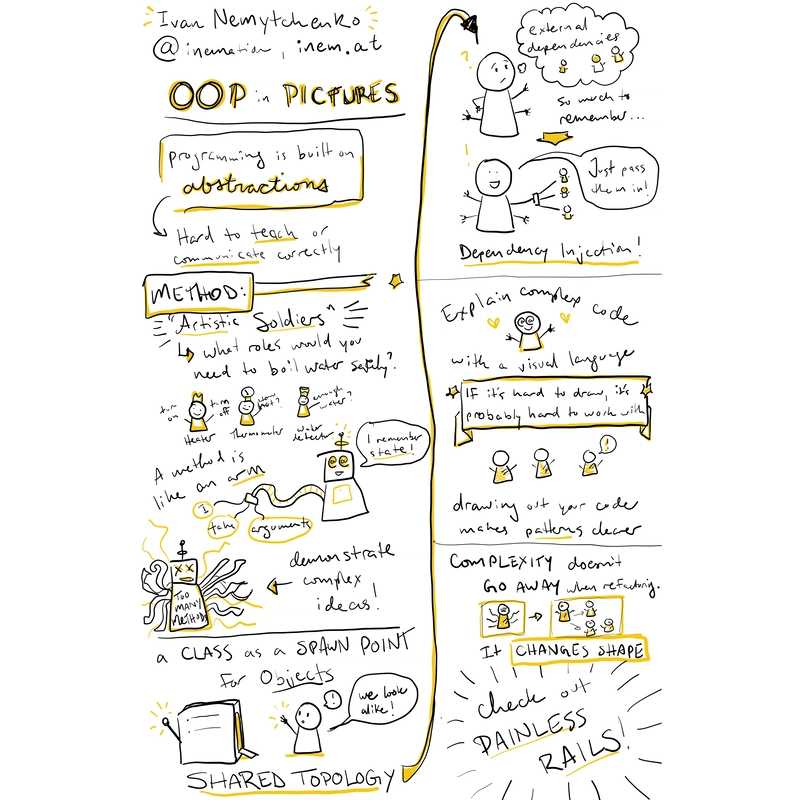 Ivan Nemytchenko
@inemation, inem.at
OOP in PICTURES
programming is built on
abstractions
Hard to teach or
communicate correctly
METHOD:
"Artistic Soldiers"
what roles would you
need to boil water safely?
turn on
Heater
turn off
how hot?
Thermometer
enough water?
water detector
A method is
like an arm
I remember
state!
I
take
arguments
TOO
MANY
METHODS
demonstrate
complex
ideas!
a CLASS as a SPAWN POINT
For Objects
!
we look
alike!
SHARED TOPOLOGY
external
dependencies
?
so much to
remember...
!
Just pass
them in!
Dependency Injection!
Explain complex code
with a visual language
IF it's hard to draw, it's
probably hard to work with
!
drawing out your code
makes patterns clearer
COMPLEXITY doesn't
GO AWAY when refactoring.
It CHANGES SHAPE
check out
PAINLESS
RAILS!